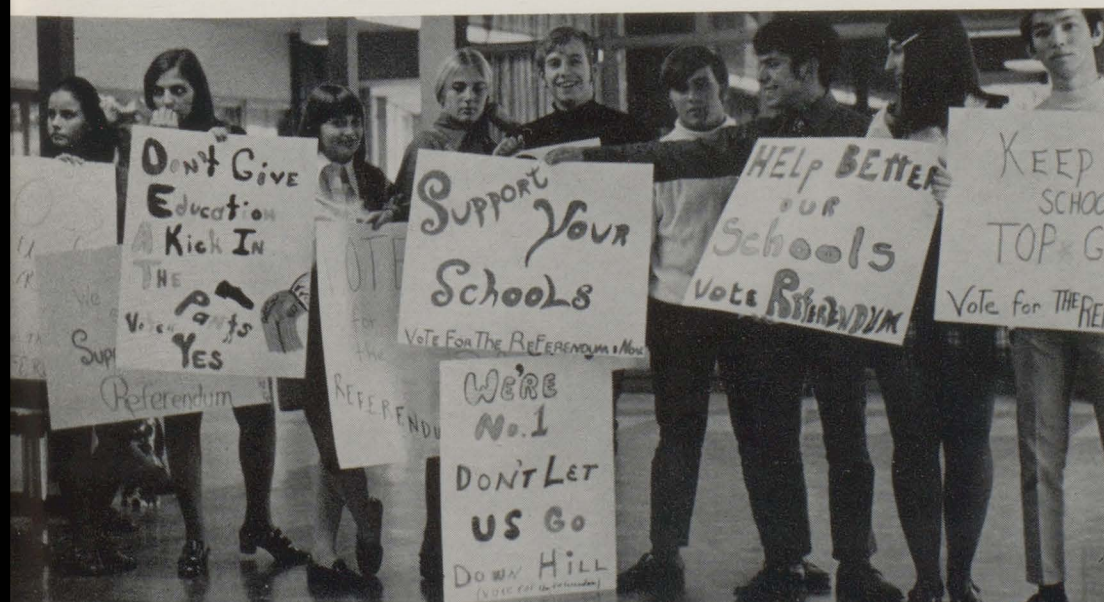 DON'T GIVE
Education
A Kick IN
THE
Pants
Vote
YES
We
Supp
Referendum
VOTE
for
the
REFERENDU
SUPPORT
YOUR
SCHOOLS
VOTE FOR THE REFERENDUM
WE'RE
No. 1
DON'T LET
US GO
DOWN HILL
(VOTE FOR the referendum)
HELP BETTER
OUR
Schools
Vote REFERENDUM
KEEP
SCHOO
TOP G
Vote for THE REF